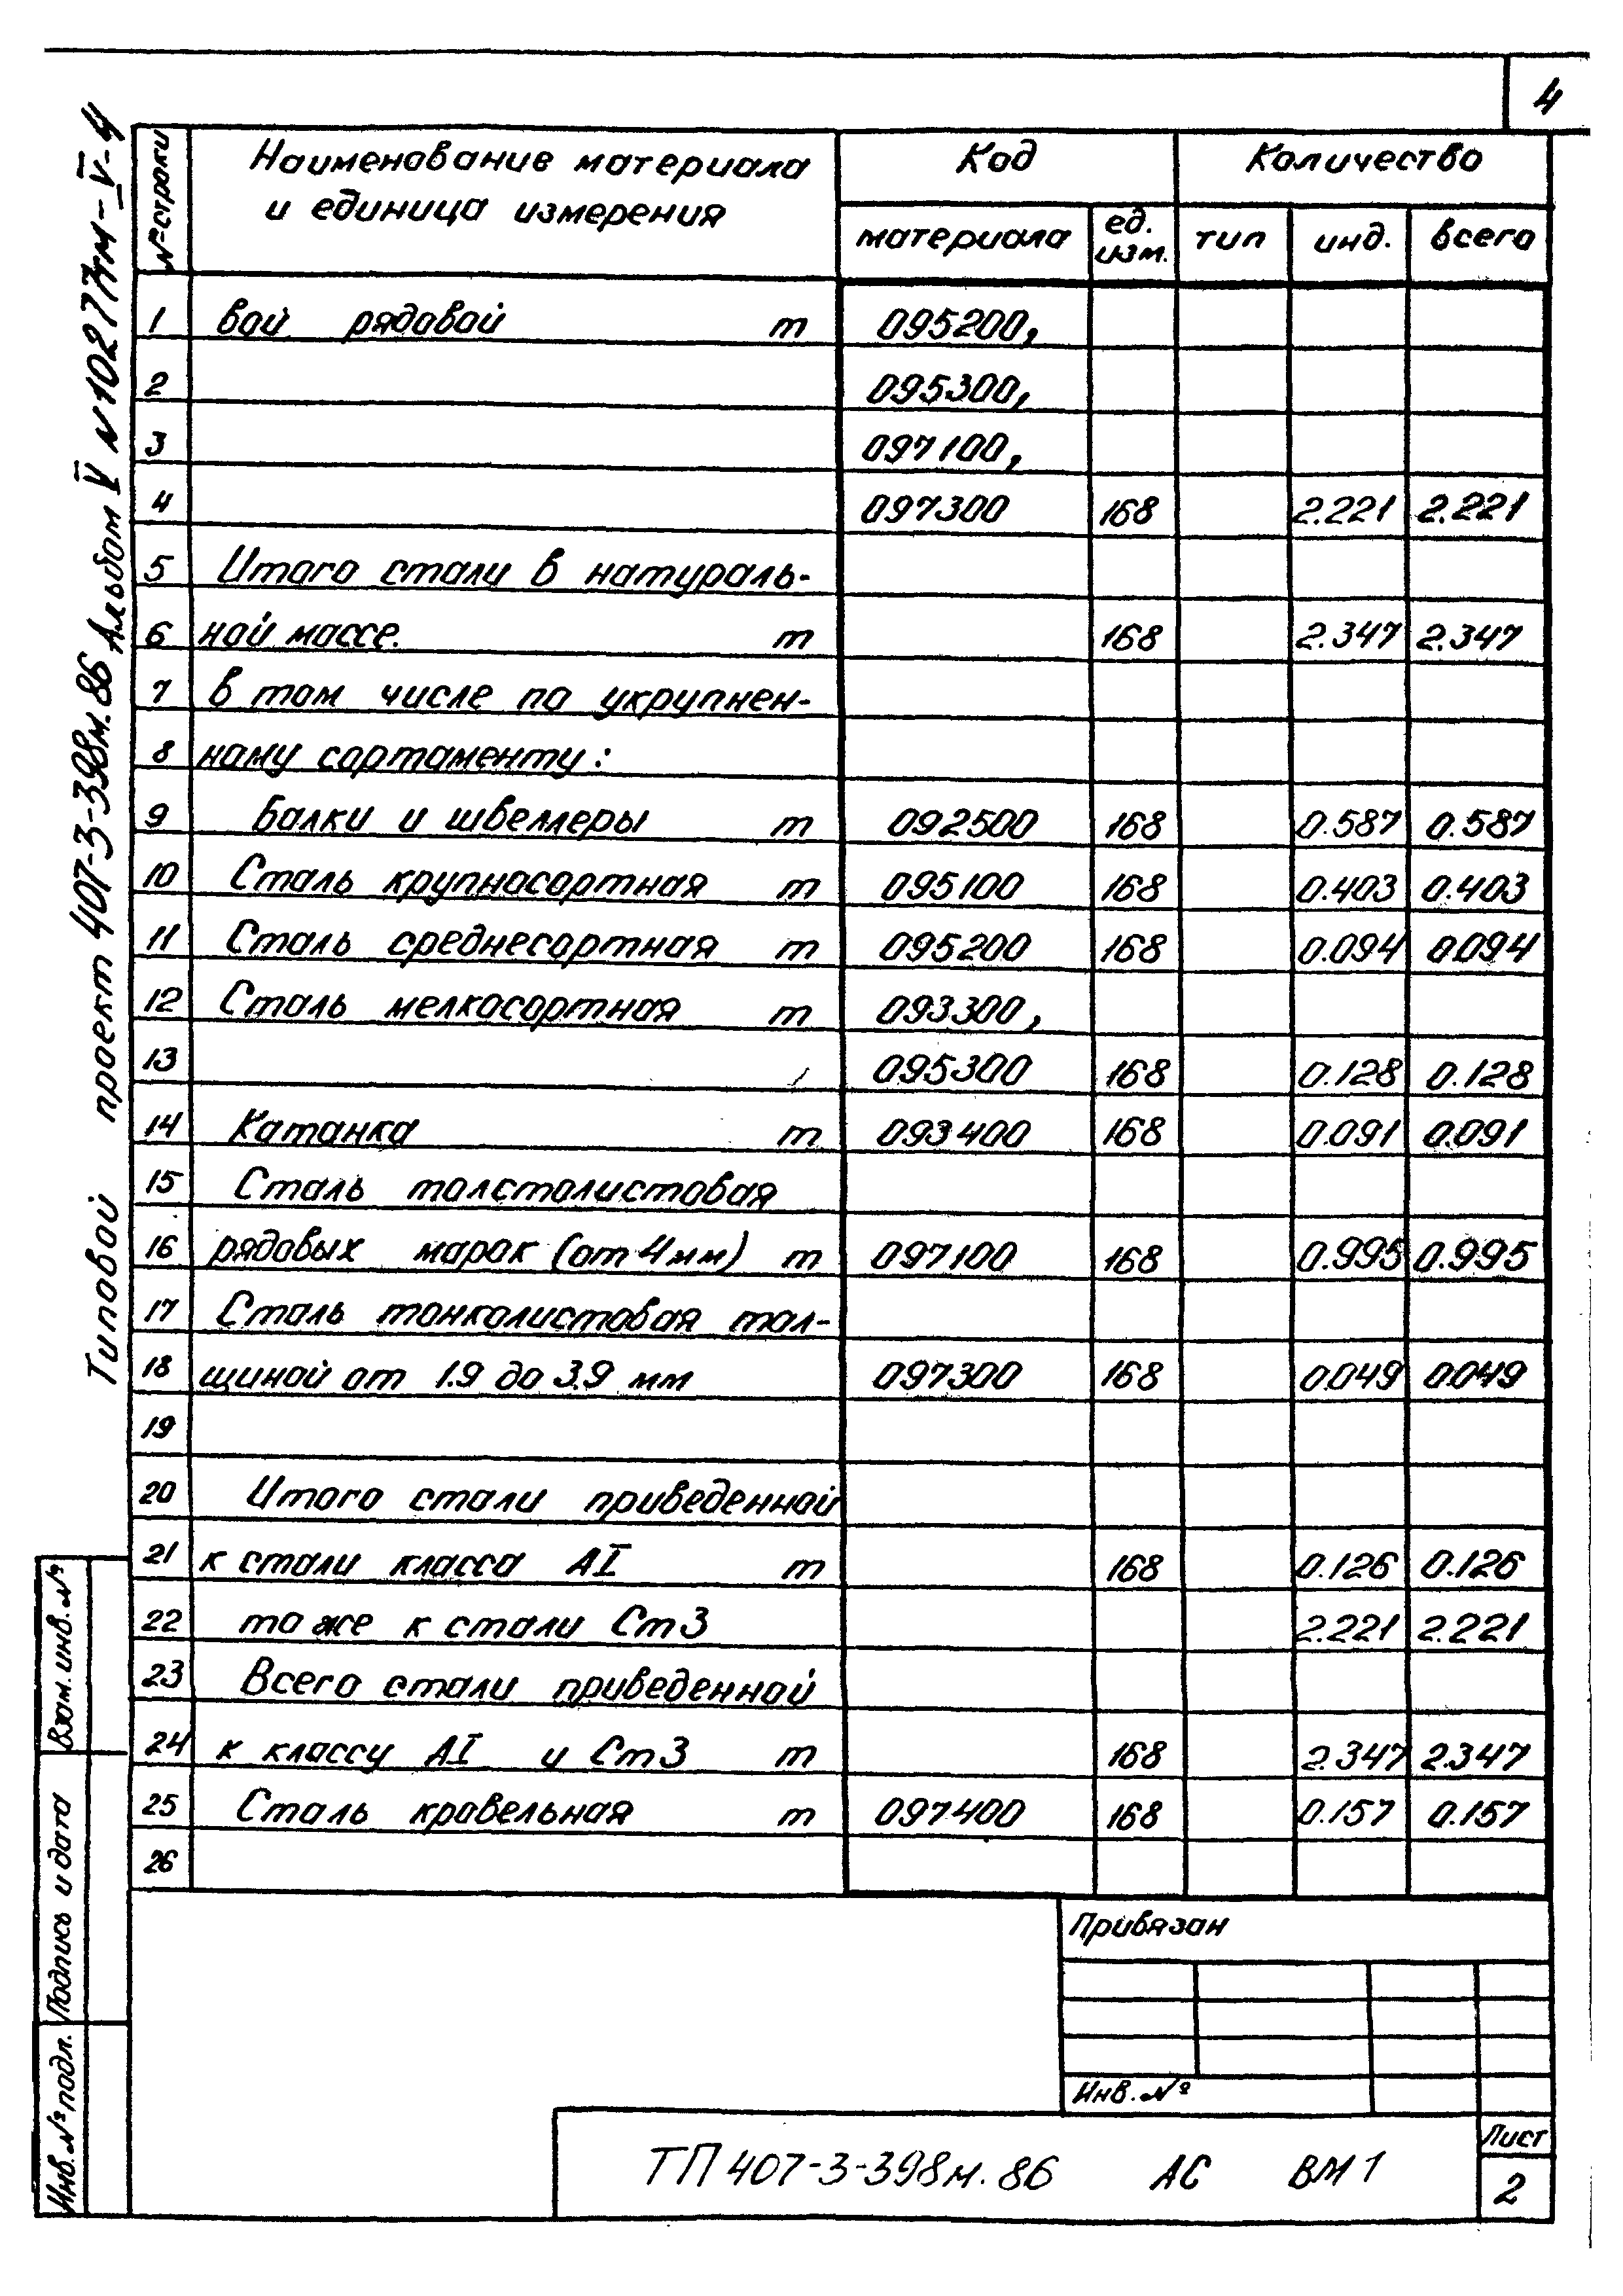 4
Типовой проект 407-3-398м.86 Альбом V N10277тм-V-4
№ строки
Наименование материала и единица измерения
Код
Количество
материала
ед. изм.
тип
инд.
всего
1 вой рядовой т 095200,
2 095300,
3 097100,
4 097300 168 2.221 2.221
5 Итого стали в натураль-
6 ной массе. т 168 2.347 2.347
7 в том числе по укрупнен-
8 ному сортаменту:
9 Балки и швеллеры т 092500 168 0.587 0.587
10 Сталь крупносортная т 095100 168 0.403 0.403
11 Сталь среднесортная т 095200 168 0.094 0.094
12 Сталь мелкосортная т 093300,
13 095300 168 0.128 0.128
14 Катанка т 093400 168 0.091 0.091
15 Сталь толстолистовая
16 рядовых марок (от 4 мм) т 097100 168 0.995 0.995
17 Сталь тонколистовая тол-
18 щиной от 1.9 до 3.9 мм 097300 168 0.049 0.049
19
20 Итого стали приведенной
21 к стали класса АI т 168 0.126 0.126
22 то же к стали Ст3 2.221 2.221
23 Всего стали приведенной
24 к классу АI и Ст3 т 168 2.347 2.347
25 Сталь кровельная т 097400 168 0.157 0.157
26
Взам. инв. №
Подпись и дата
Инв. № подл.
Привязан
Инв. №
ТП 407-3-398м.86 АС ВМ1
Лист
2